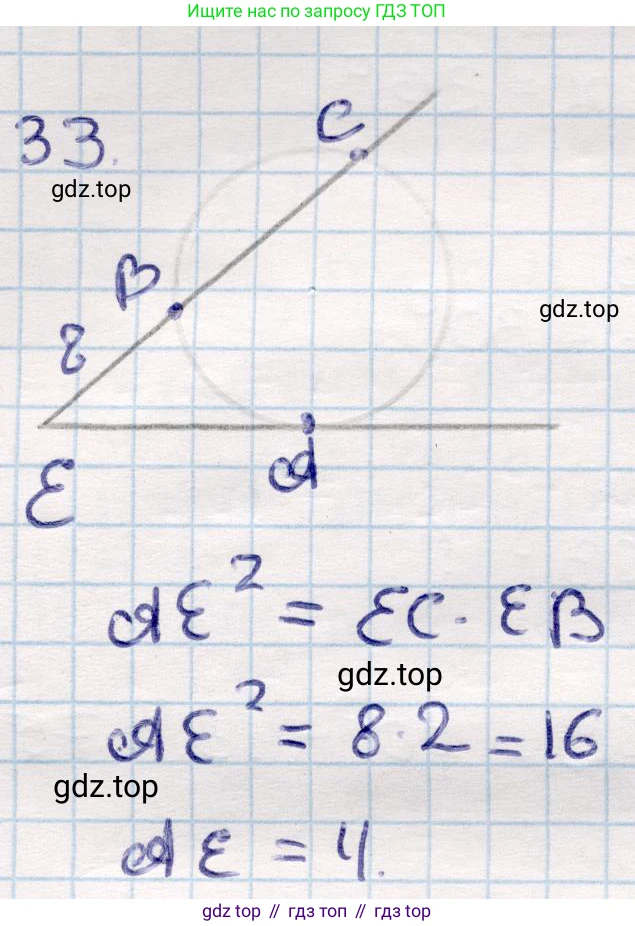 Ищите нас по запросу ГДЗ ТОП
C
33.
gdz.top
B
gdz.top
2
A
E
AE² = EC · EB
gdz.top
AE² = 8 · 2 = 16
gdz.top
AE = 4.
gdz.top // гдз топ // гдз top